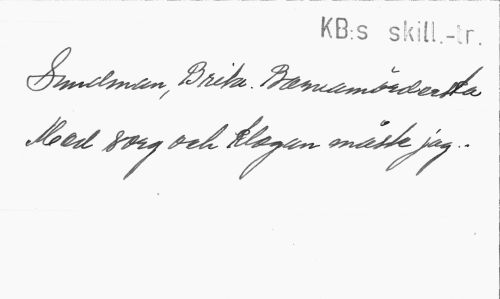 KB:s skill.-tr.
Sundman, Brita. Barnamörderska
Med sorg och klagan måste jag..